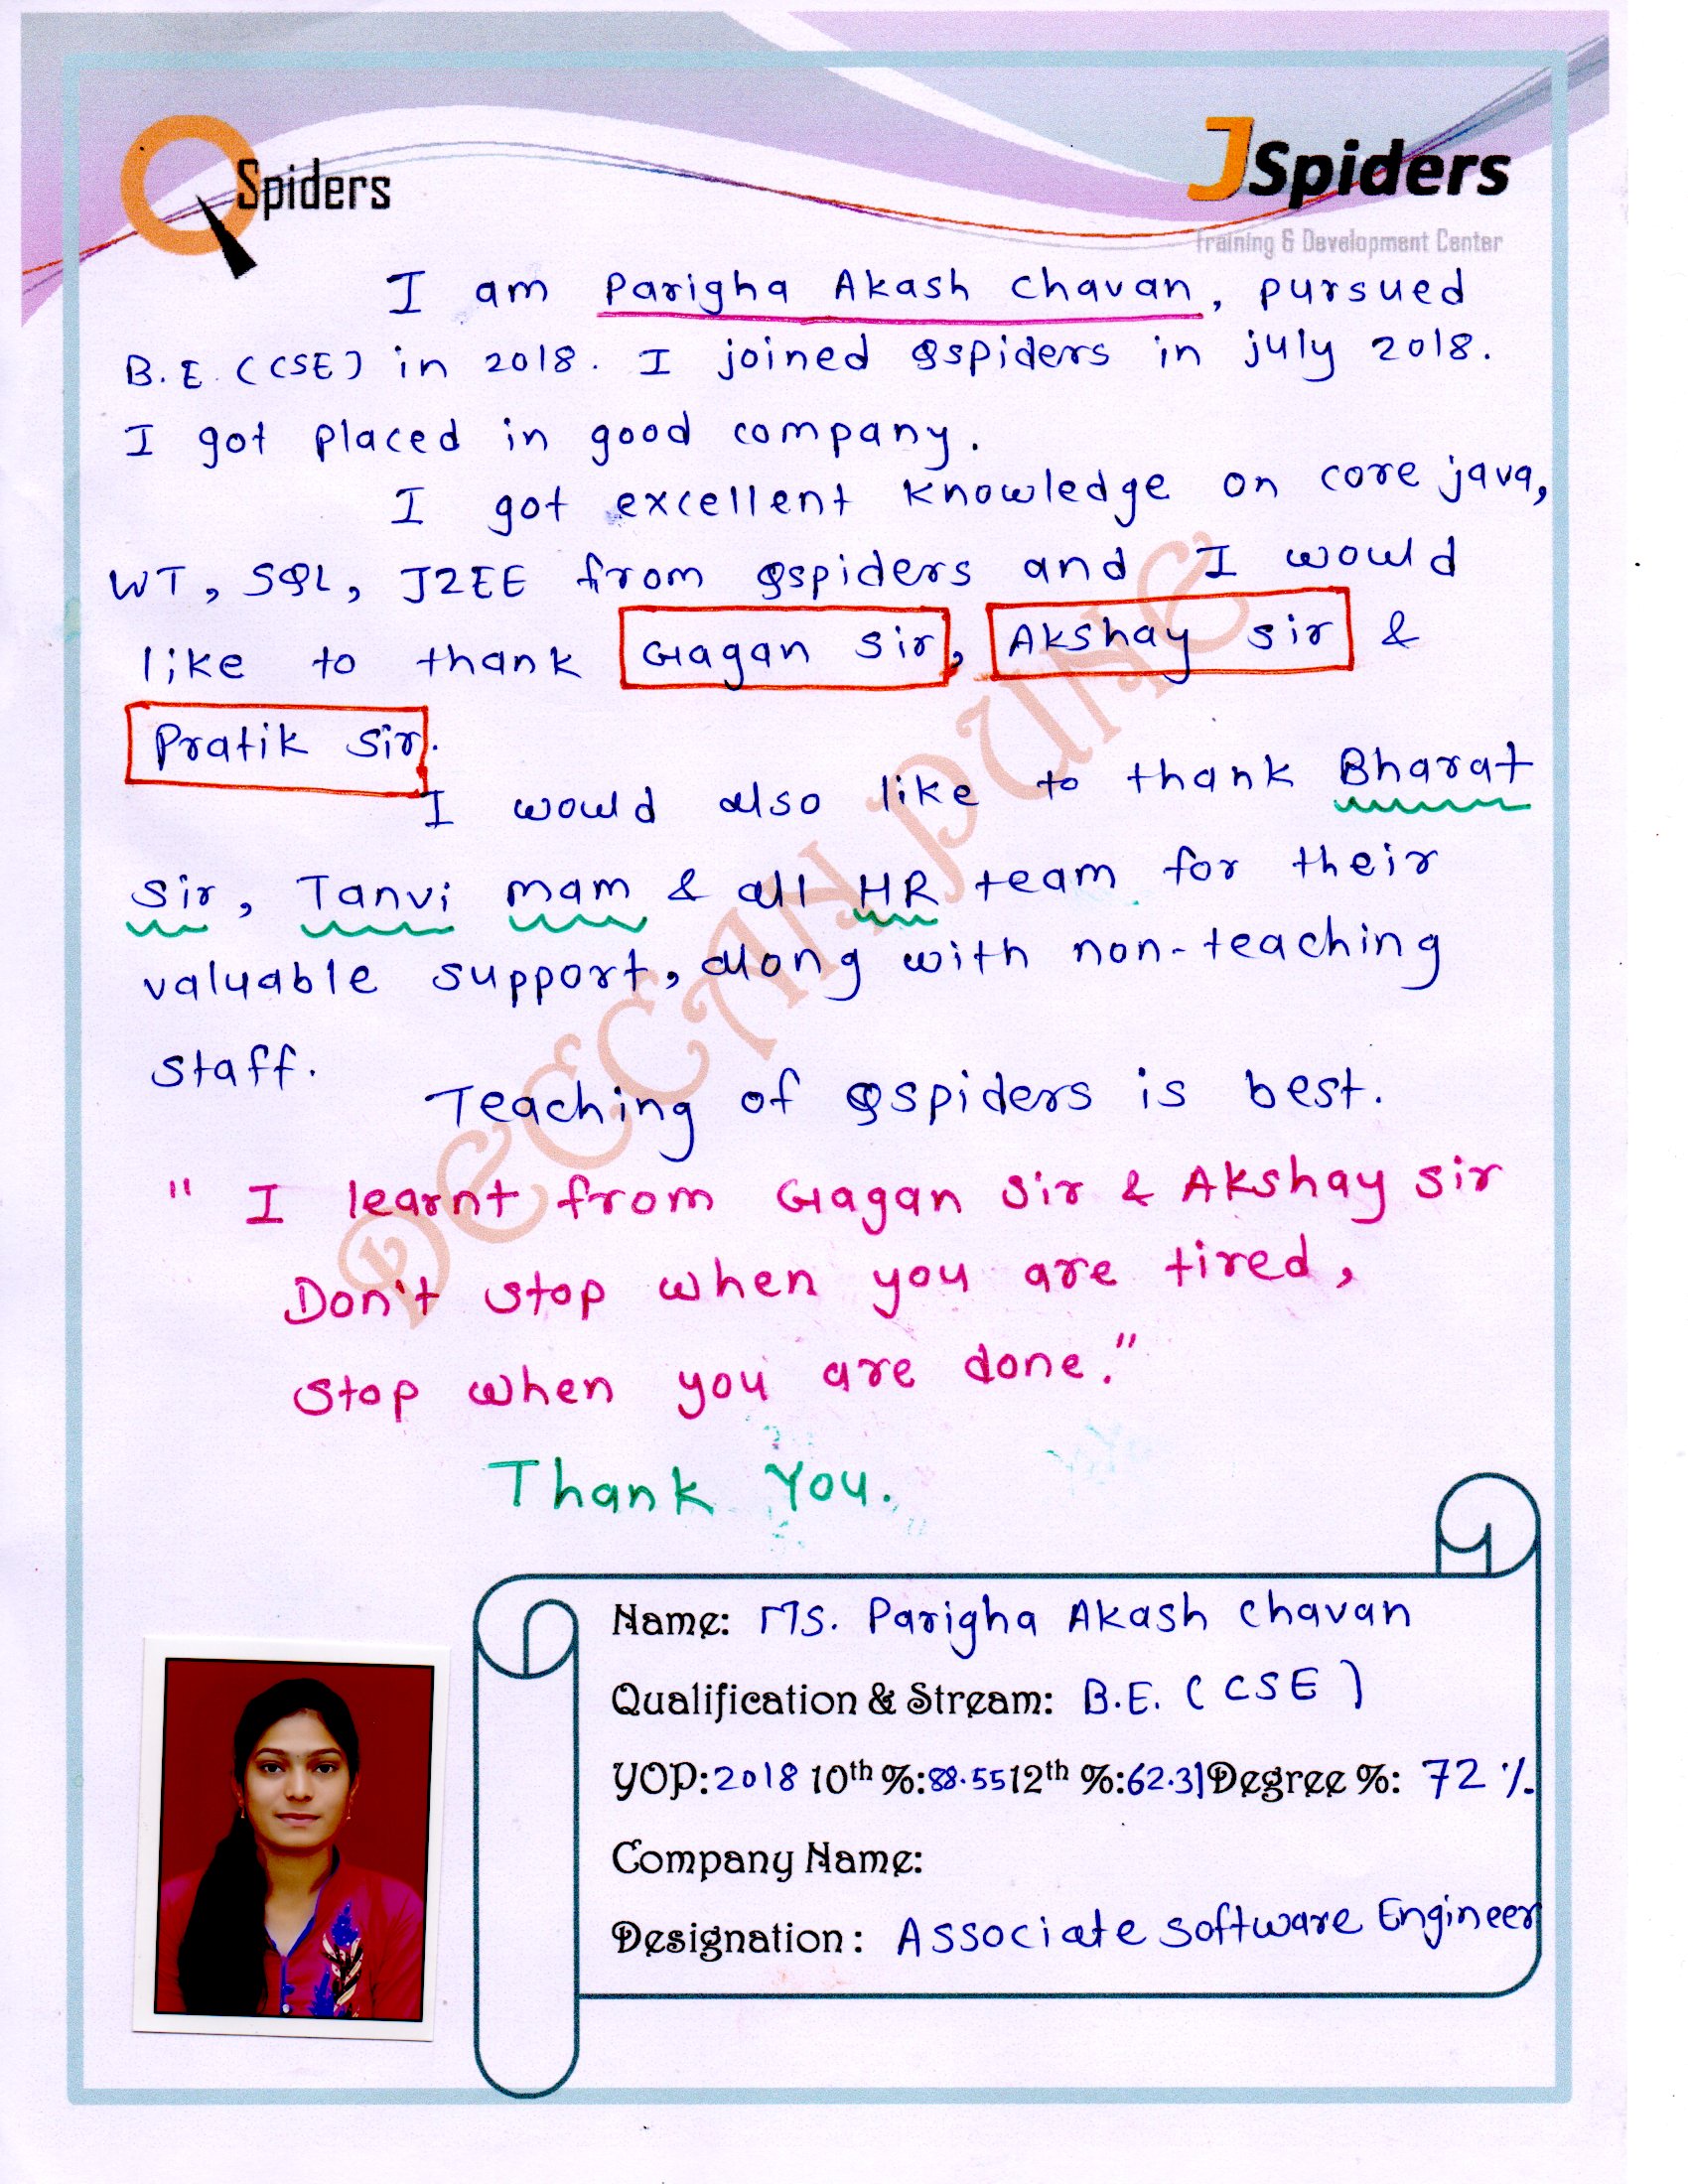 QSpiders
JSpiders
Training & Development Center
I am Parigha Akash Chavan, pursued
B.E. (CSE) in 2018. I joined Qspiders in july 2018.
I got placed in good company.
I got excellent knowledge on core java,
WT, SQL, J2EE from Qspiders and I would
like to thank Gagan Sir, Akshay sir &
Pratik Sir.
I would also like to thank Bharat
Sir, Tanvi mam & all HR team for their
valuable support, along with non-teaching
staff.
Teaching of Qspiders is best.
" I learnt from Gagan Sir & Akshay sir
Don't stop when you are tired,
stop when you are done."
Thank You.
DECCAN PUNE
Name: Ms. Parigha Akash Chavan
Qualification & Stream: B.E. (CSE)
YOP:2018 10th %:88.55 12th %:62.31 Degree %: 72 %
Company Name:
Designation: Associate Software Engineer